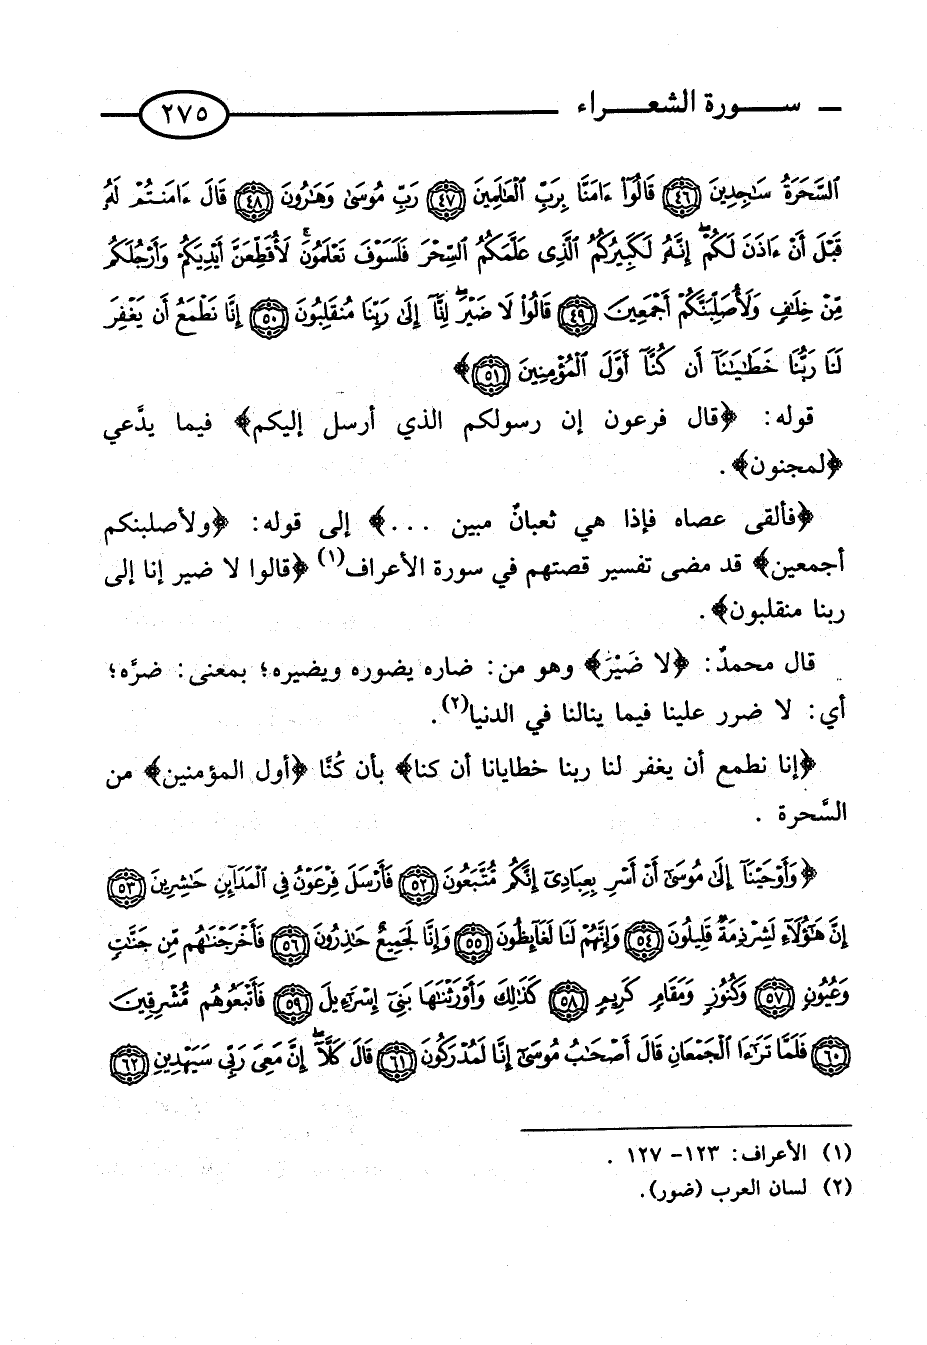 سورة الشعراء ٢٧٥
السَّحَرَةُ سَاجِدِينَ ٤٦ قَالُوٓا۟ ءَامَنَّا بِرَبِّ الْعَالَمِينَ ٤٧ رَبِّ مُوسَىٰ وَهَارُونَ ٤٨ قَالَ ءَامَنتُمْ لَهُ
قَبْلَ أَنْ ءَاذَنَ لَكُمْ ۖ إِنَّهُ لَكَبِيرُكُمُ الَّذِى عَلَّمَكُمُ السِّحْرَ فَلَسَوْفَ تَعْلَمُونَ ۚ لَأُقَطِّعَنَّ أَيْدِيَكُمْ وَأَرْجُلَكُم
مِّنْ خِلَافٍ وَلَأُصَلِّبَنَّكُمْ أَجْمَعِينَ ٤٩ قَالُوا۟ لَا ضَيْرَ ۖ إِنَّآ إِلَىٰ رَبِّنَا مُنقَلِبُونَ ٥٠ إِنَّا نَطْمَعُ أَن يَغْفِرَ
لَنَا رَبُّنَا خَطَايَانَآ أَن كُنَّآ أَوَّلَ الْمُؤْمِنِينَ ٥١﴾
قوله: ﴿قال فرعون إن رسولكم الذي أرسل إليكم﴾ فيما يدَّعي
﴿لمجنون﴾.
﴿فألقى عصاه فإذا هي ثعبانٌ مبين ...﴾ إلى قوله: ﴿ولأصلبنكم
أجمعين﴾ قد مضى تفسير قصتهم في سورة الأعراف(١) ﴿قالوا لا ضير إنا إلى
ربنا منقلبون﴾.
قال محمدٌ: ﴿لا ضَيْرَ﴾ وهو من: ضاره يضوره ويضيره؛ بمعنى: ضرَّه؛
أي: لا ضرر علينا فيما ينالنا في الدنيا(٢).
﴿إنا نطمع أن يغفر لنا ربنا خطايانا أن كنا﴾ بأن كُنَّا ﴿أول المؤمنين﴾ من
السَّحرة .
﴿وَأَوْحَيْنَآ إِلَىٰ مُوسَىٰٓ أَنْ أَسْرِ بِعِبَادِىٓ إِنَّكُم مُّتَّبَعُونَ ٥٢ فَأَرْسَلَ فِرْعَوْنُ فِى الْمَدَآئِنِ حَاشِرِينَ ٥٣
إِنَّ هَـٰٓؤُلَآءِ لَشِرْذِمَةٌ قَلِيلُونَ ٥٤ وَإِنَّهُمْ لَنَا لَغَآئِظُونَ ٥٥ وَإِنَّا لَجَمِيعٌ حَاذِرُونَ ٥٦ فَأَخْرَجْنَاهُم مِّن جَنَّاتٍ
وَعُيُونٍ ٥٧ وَكُنُوزٍ وَمَقَامٍ كَرِيمٍ ٥٨ كَذَالِكَ وَأَوْرَثْنَاهَا بَنِىٓ إِسْرَآءِيلَ ٥٩ فَأَتْبَعُوهُم مُّشْرِقِينَ
٦٠ فَلَمَّا تَرَآءَا الْجَمْعَانِ قَالَ أَصْحَابُ مُوسَىٰٓ إِنَّا لَمُدْرَكُونَ ٦١ قَالَ كَلَّآ ۖ إِنَّ مَعِىَ رَبِّى سَيَهْدِينِ ٦٢
(١) الأعراف: ١٢٣- ١٢٧ .
(٢) لسان العرب (ضور).